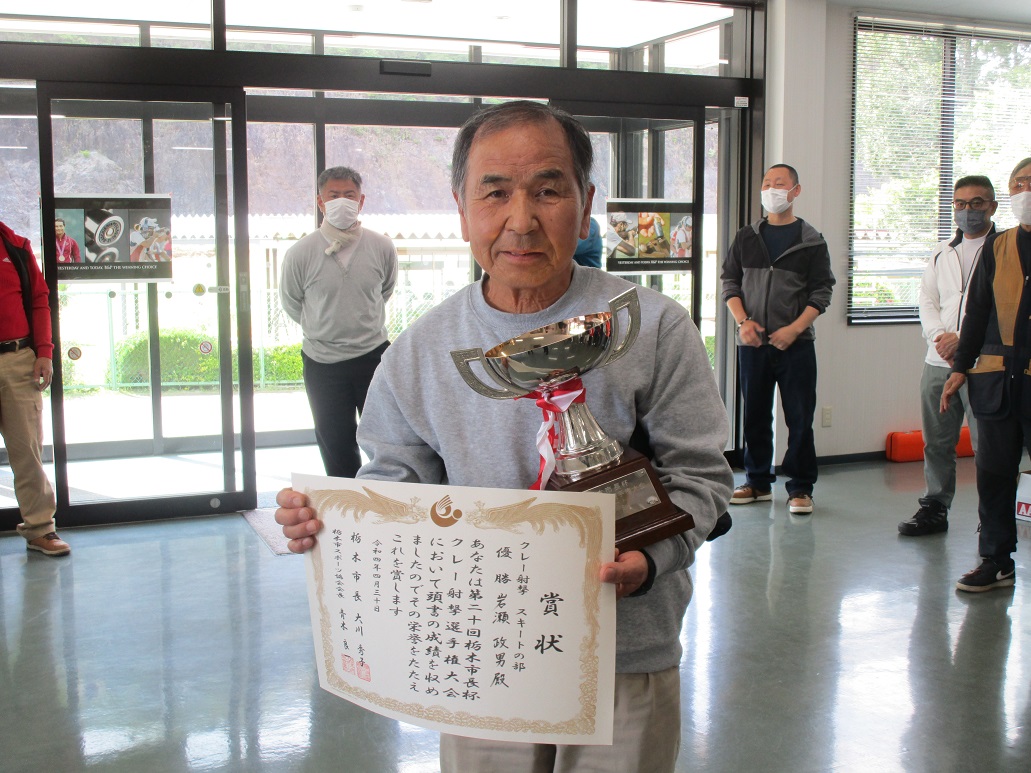 賞状
クレー射撃 スキートの部
優勝 岩瀬政男殿
あなたは第二十回栃木市長杯
クレー射撃選手権大会
において頭書の成績を収め
ましたのでその栄誉をたたえ
これを賞します
令和四年四月三十日
栃木市長 大川秀子
栃木市スポーツ協会会長 青木良一
YESTERDAY AND TODAY, B&P THE WINNING CHOICE
YESTERDAY AND TODAY, B&P THE WINNING CHOICE